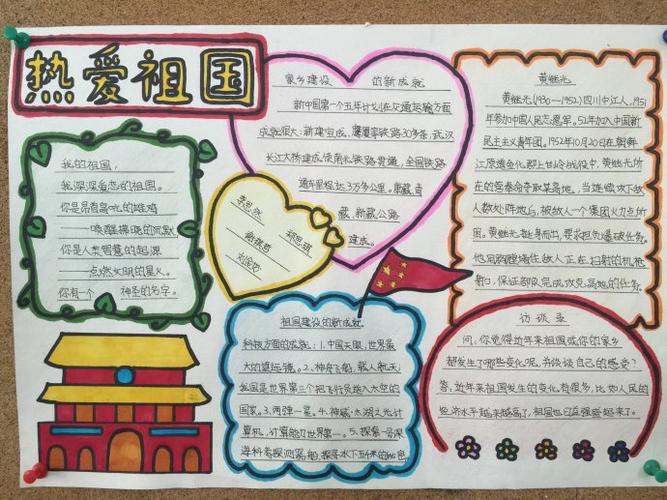 热爱祖国
我的祖国，
我深深爱恋的祖国。
你是昂首高吭的雄鸡
——唤醒拂晓的沉默
你是人类智慧的起源
——点燃文明的星火。
你有一个 神圣的名字。
家乡建设 的新成就
新中国第一个五年计划在交通运输方面
成就很大：新建宝成、鹰厦等铁路30多条，武汉
长江大桥建成使南北铁路贯通，全国铁路
通车里程达3万多公里。康藏、青
藏、新藏公路
建成。
李思
祖国建设的新成就
科技方面的成就：1.中国天眼，世界最
大的望远镜。2.神舟飞船，载人航天
我国是世界第三个把飞行员送入太空的
国家。3.两弹一星。4.神威·太湖之光计
算机，计算能力世界第一。5.探索一号深
渊科考探测船，探寻水下万米的秘密
黄继光
黄继光(1930—1952)四川中江人，1951
年参加中国人民志愿军。52年加入中国新
民主主义青年团。1952年10月20日在朝鲜
江原道金化郡上甘岭战役中，黄继光所
在的营奉命夺取某高地。当连续攻下敌
人数处阵地后，被敌人一个集团火力点所
困。黄继光挺身而出，要求担负爆破任务。
他用胸膛堵住敌人正在扫射的机枪
射口，保证部队完成攻克高地的任务。
访谈录
问：你觉得近年来祖国或你的家乡
都发生了哪些变化呢，并谈谈自己的感受？
答：近年来祖国发生的变化有很多，比如人民的
经济水平越来越高了，祖国也日益强盛起来了。